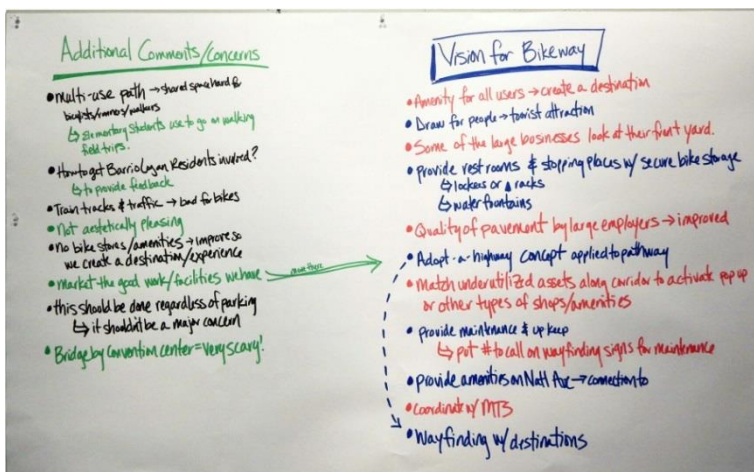 Additional Comments/concerns
• multi-use path → shared space hard for
bicyclists/runners/walkers
↳ elementary students use to go on walking
field trips.
• How to get Barrio Logan Residents involved?
↳ to provide feedback
• Train tracks & traffic → bad for bikes
• Not aestetically pleasing
• no bike stores/amenities → improve so
we create a destination/experience
• market the good work/facilities we have
• this should be done regardless of parking
↳ it shouldn't be a major concern
• Bridge by convention center = very scary!
Vision for Bikeway
• Amenity for all users → create a destination
• Draw for people → tourist attraction
• Some of the large businesses look at their front yard.
• provide rest rooms & stopping places w/ secure bike storage
↳ lockers or racks
↳ water fountains
• Quality of pavement by large employers → improved
• Adopt-a-highway concept applied to pathway
• Match underutilized assets along corridor to activate pop up
or other types of shops/amenities
• provide maintenance & up keep
↳ put # to call on wayfinding signs for maintenance
• provide amenities on Natl Ave → connection to
• coordinate w/ MTS
• Wayfinding w/ destinations